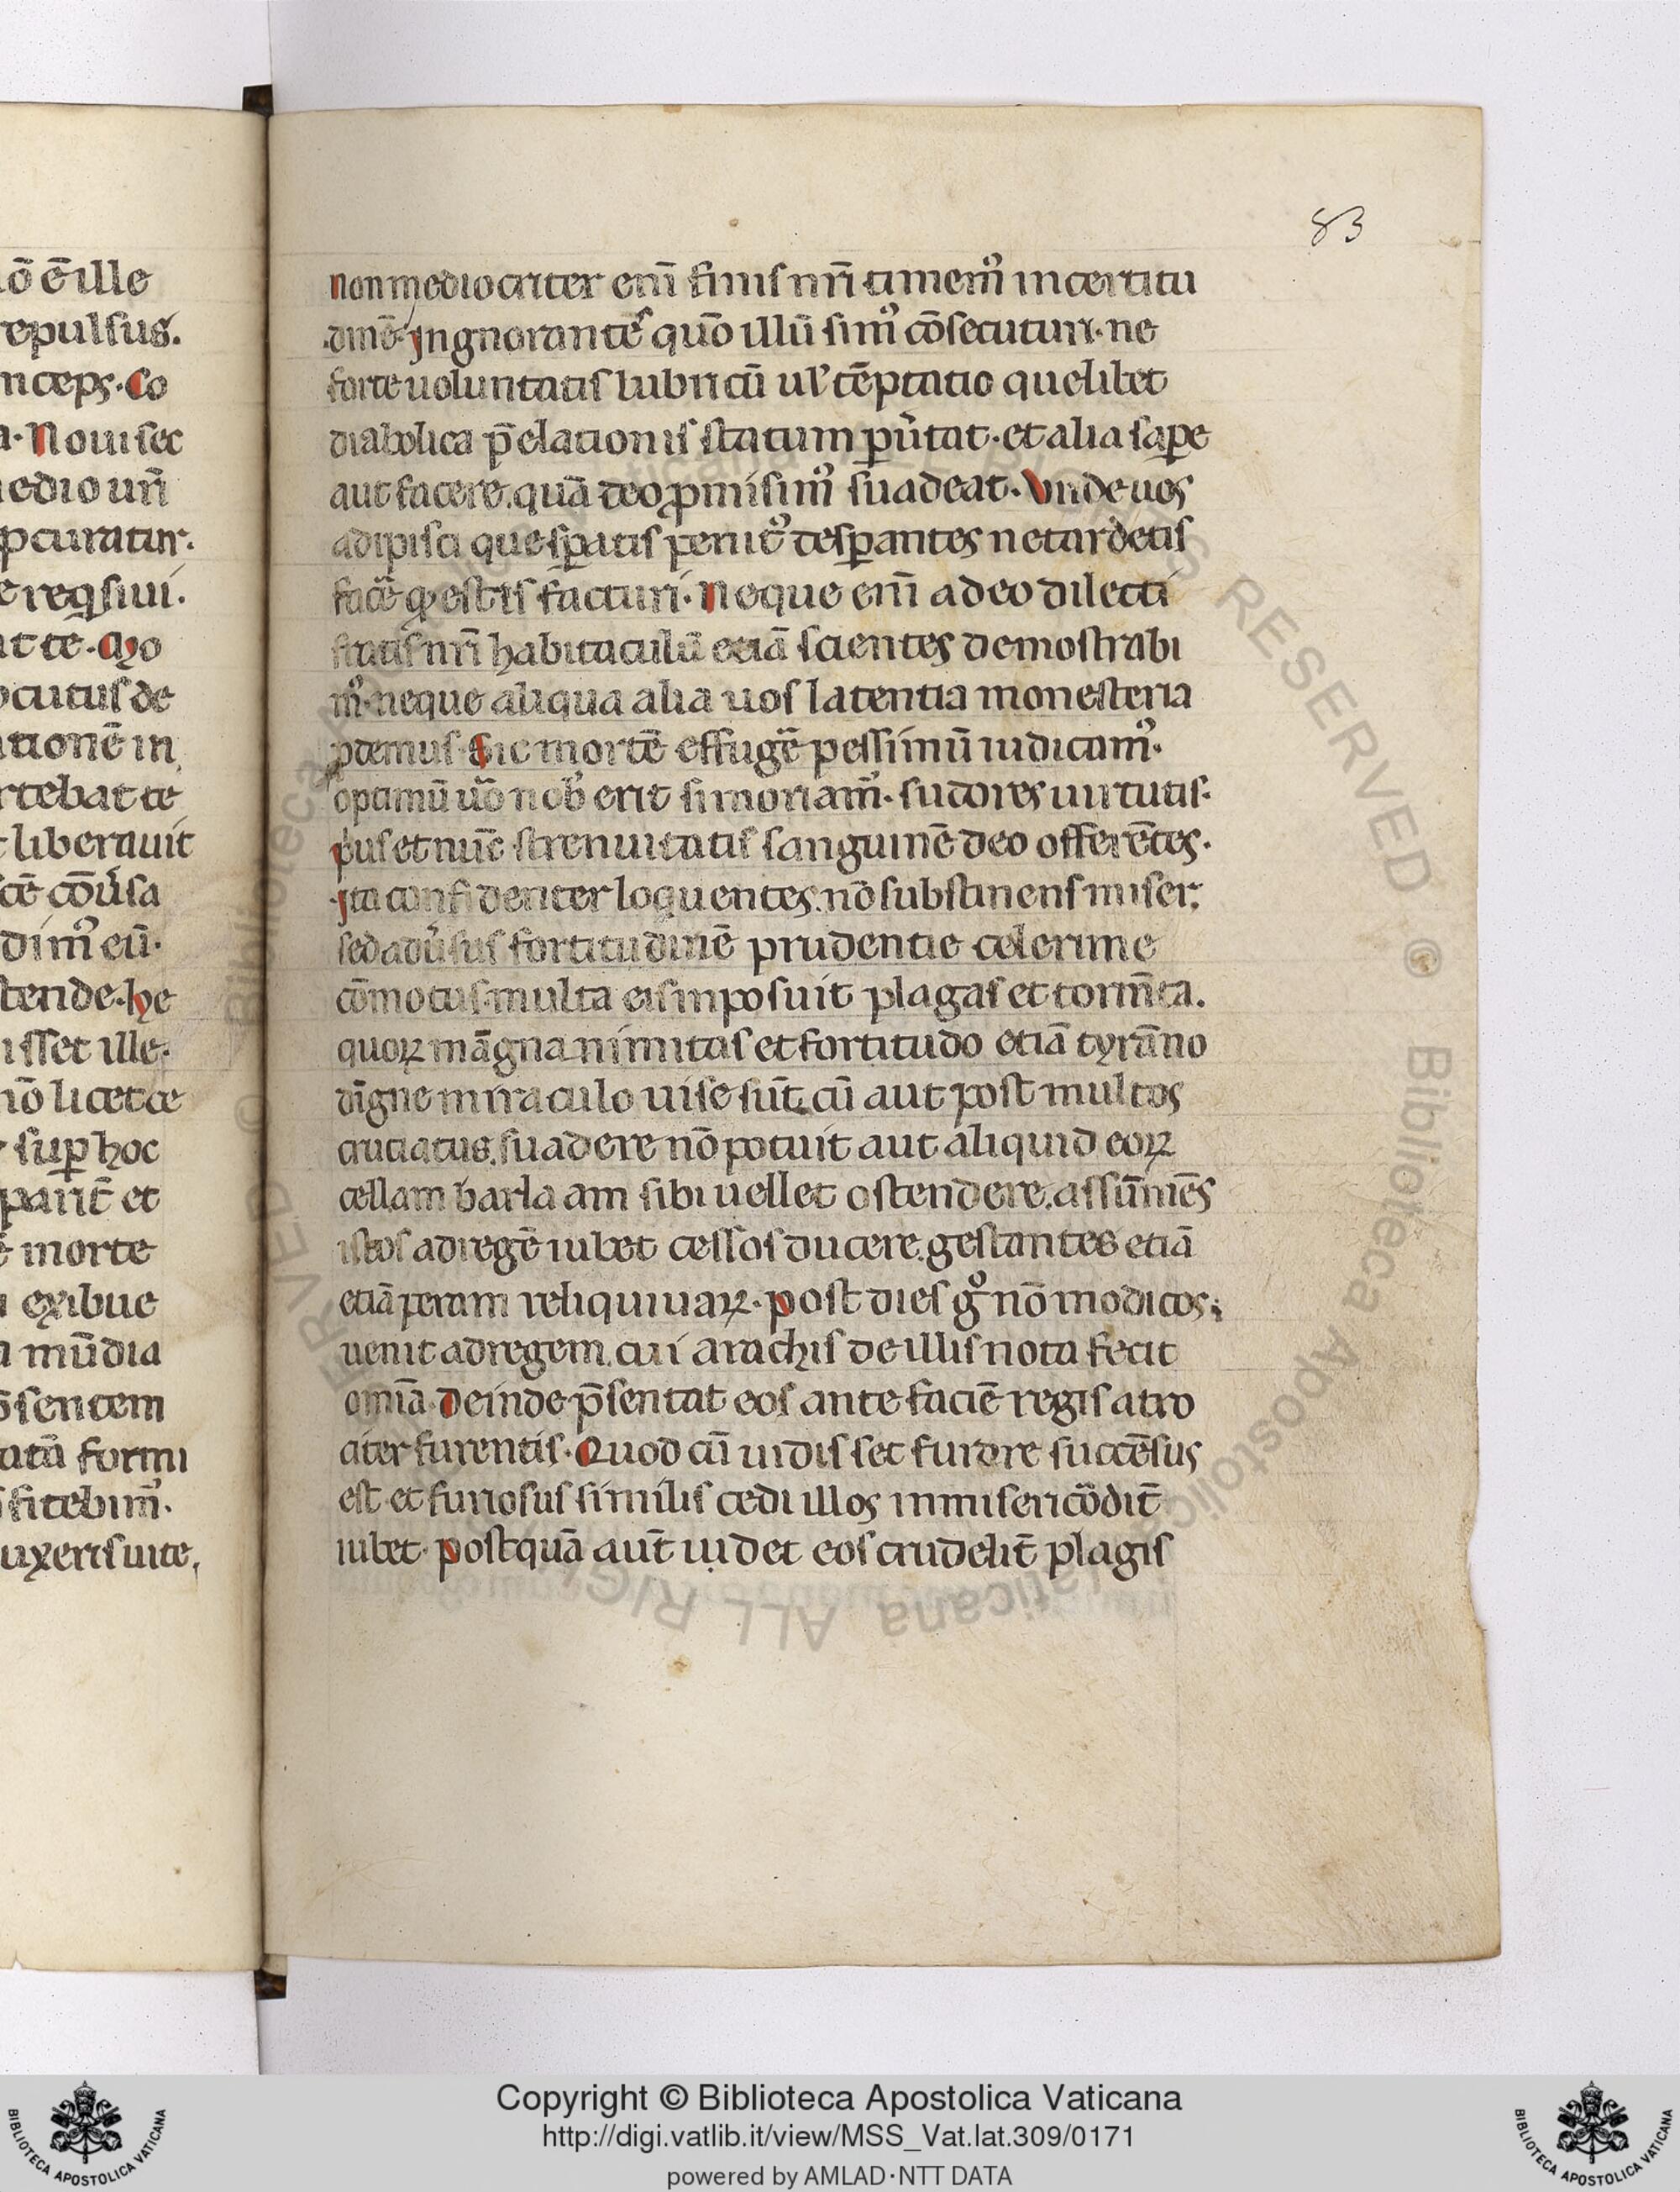 83
ō ē ille
repulsus.
nceps. Co
a. Noui sec
edio urī
pcuratur.
e reqsiui.
at te. Mo
ocutus de
ationē in
rtebat te
t liberauit
cē cōusa
dim᷒ eū.
tende. he
isset ille.
nō licet ce
sup hoc
parit̄ et
morte
exibue
a mūdia
sentem
atā formi
fitebim᷒.
uxeris uite,
non mediocriter enī finis nrī timem᷒ incertitu
dinē. Jngnorantes quō illū sim᷒ cōsecuturi. ne
forte uoluntatis lubricū ul' tēptatio quelibet
diabolica p̄elationis statum pu̔tat. et alia sape
aut facere. quā deo ꝓmisim᷒ suadeat. Vnde uos
adipisci que sꝑatis penit᷒ desꝑantes ne tardetis
facē q̄ estis facturi. Neque enī adeo dilecti
fratris nrī habitaculū etiā scientes demostrabi
m᷒. neque aliqua alia uos latentia monesteria
ꝓdemus. Sic mortē effugē pessimū iudicam᷒.
optimū uō nob᷒ erit si moriam᷒. sudores uirtutis.
pus et nūc strenuitatis sanguinē deo offerētes.
Jta confidenter loquentes. nō substinens miser.
sed adu̔sus fortitudinē prudentie celerime
cōmotus. multa eis inposuit plagas et torm̄ta.
quoꝝ māgnanimitas et fortitudo etiā tyrāno
dīgne miraculo uise sūt. cū aut post multos
cruciatus. suadere nō potuit aut aliquid eoꝝ
cellam barlaam sibi uellet ostendere. assūmēs
istos ad regē iubet cessos ducere. gestantes etiā
etiā peram reliquiuaꝝ. Post dies g᷒ nō modicos.
uenit ad regem. cui arachis de illis nota fecit
omīa. Deinde p̄sentat eos ante faciē regis atro
citer furentis. Quod cū uidisset furore succēsus
est. et furiosus similis cedi illos inmisericōdit̄
iubet. Postquā aut̄ uidet eos crudelit̄ plagis
Copyright © Biblioteca Apostolica Vaticana
http://digi.vatlib.it/view/MSS_Vat.lat.309/0171
powered by AMLAD·NTT DATA
BIBLIOTECA APOSTOLICA VATICANA
BIBLIOTECA APOSTOLICA VATICANA